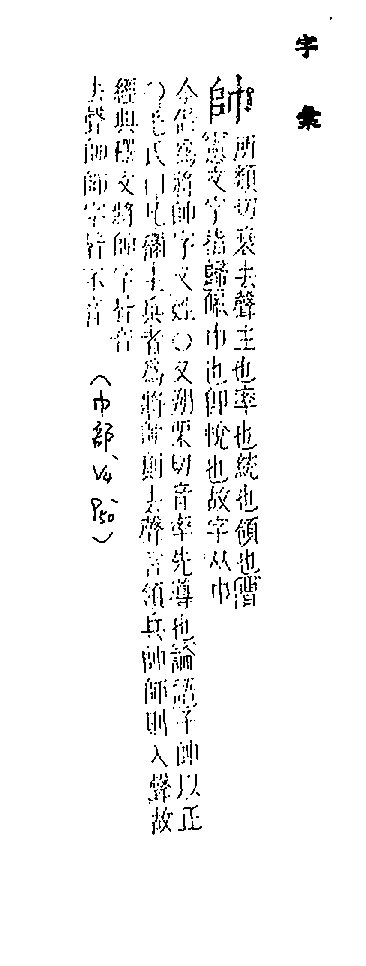 字彙
帥
所類切衰去聲主也率也統也領也曹
憲文字指歸佩巾也即帨也故字从巾
今借為將帥字又姓〇又朔栗切音率先導也論語子帥以正
〇毛氏曰凡稱主兵者為將帥則去聲言領兵帥師則入聲故
經典釋文將帥字皆音
去聲帥師字皆不音
(巾部、V4、P50)